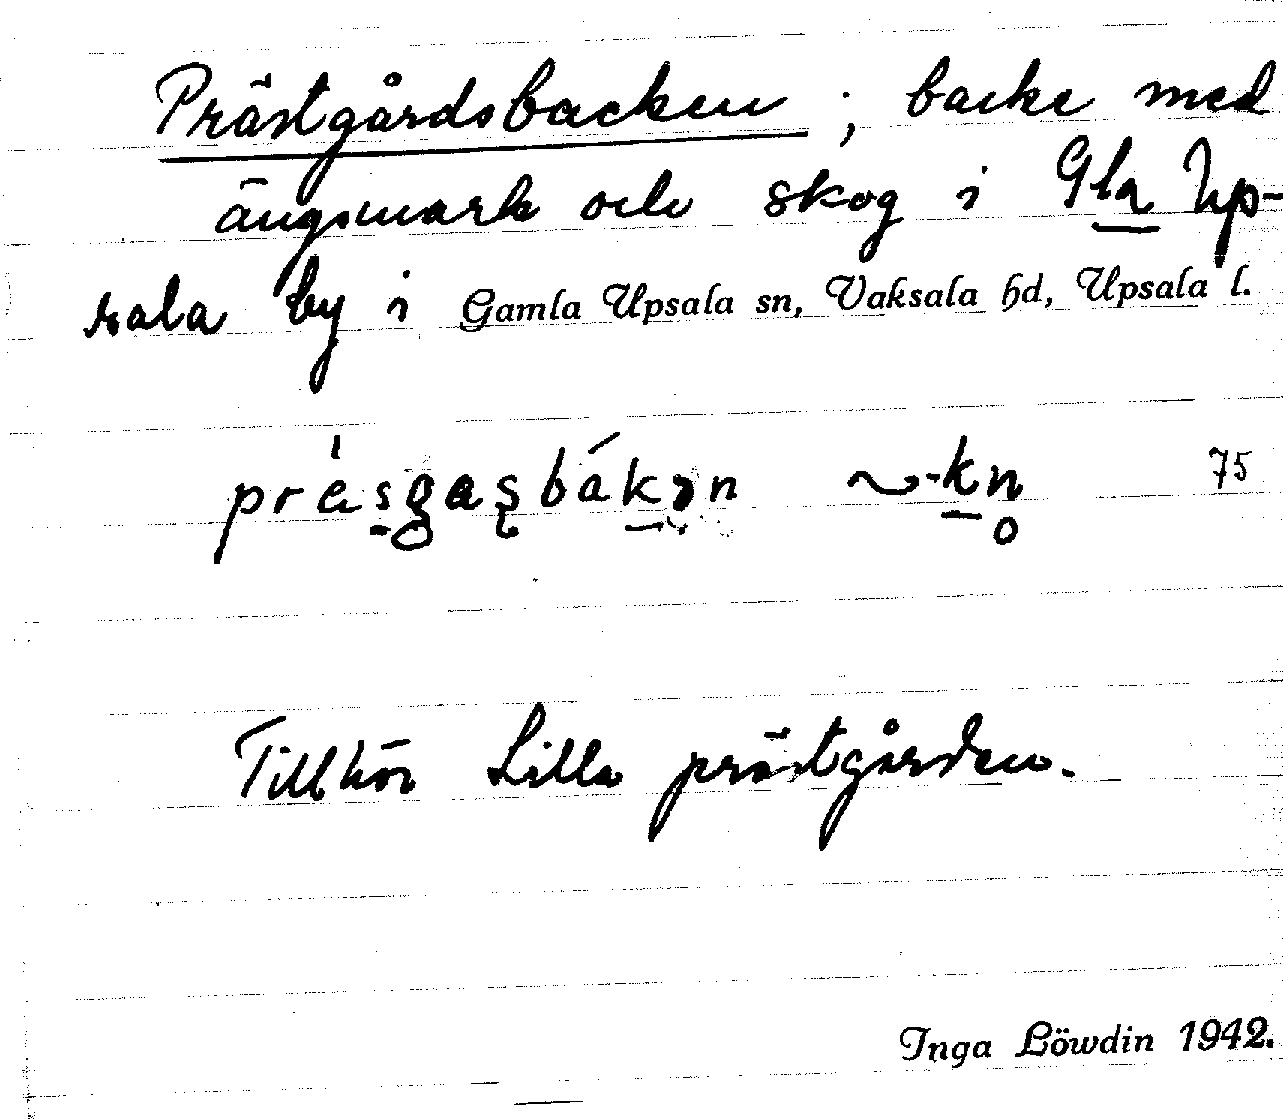 Prästgårdsbacken ; backe med
ängsmark och skog i Gla Up-
sala by i Gamla Upsala sn, Vaksala hd, Upsala l.
75
Tillhör Lilla prästgården.
Inga Löwdin 1942.